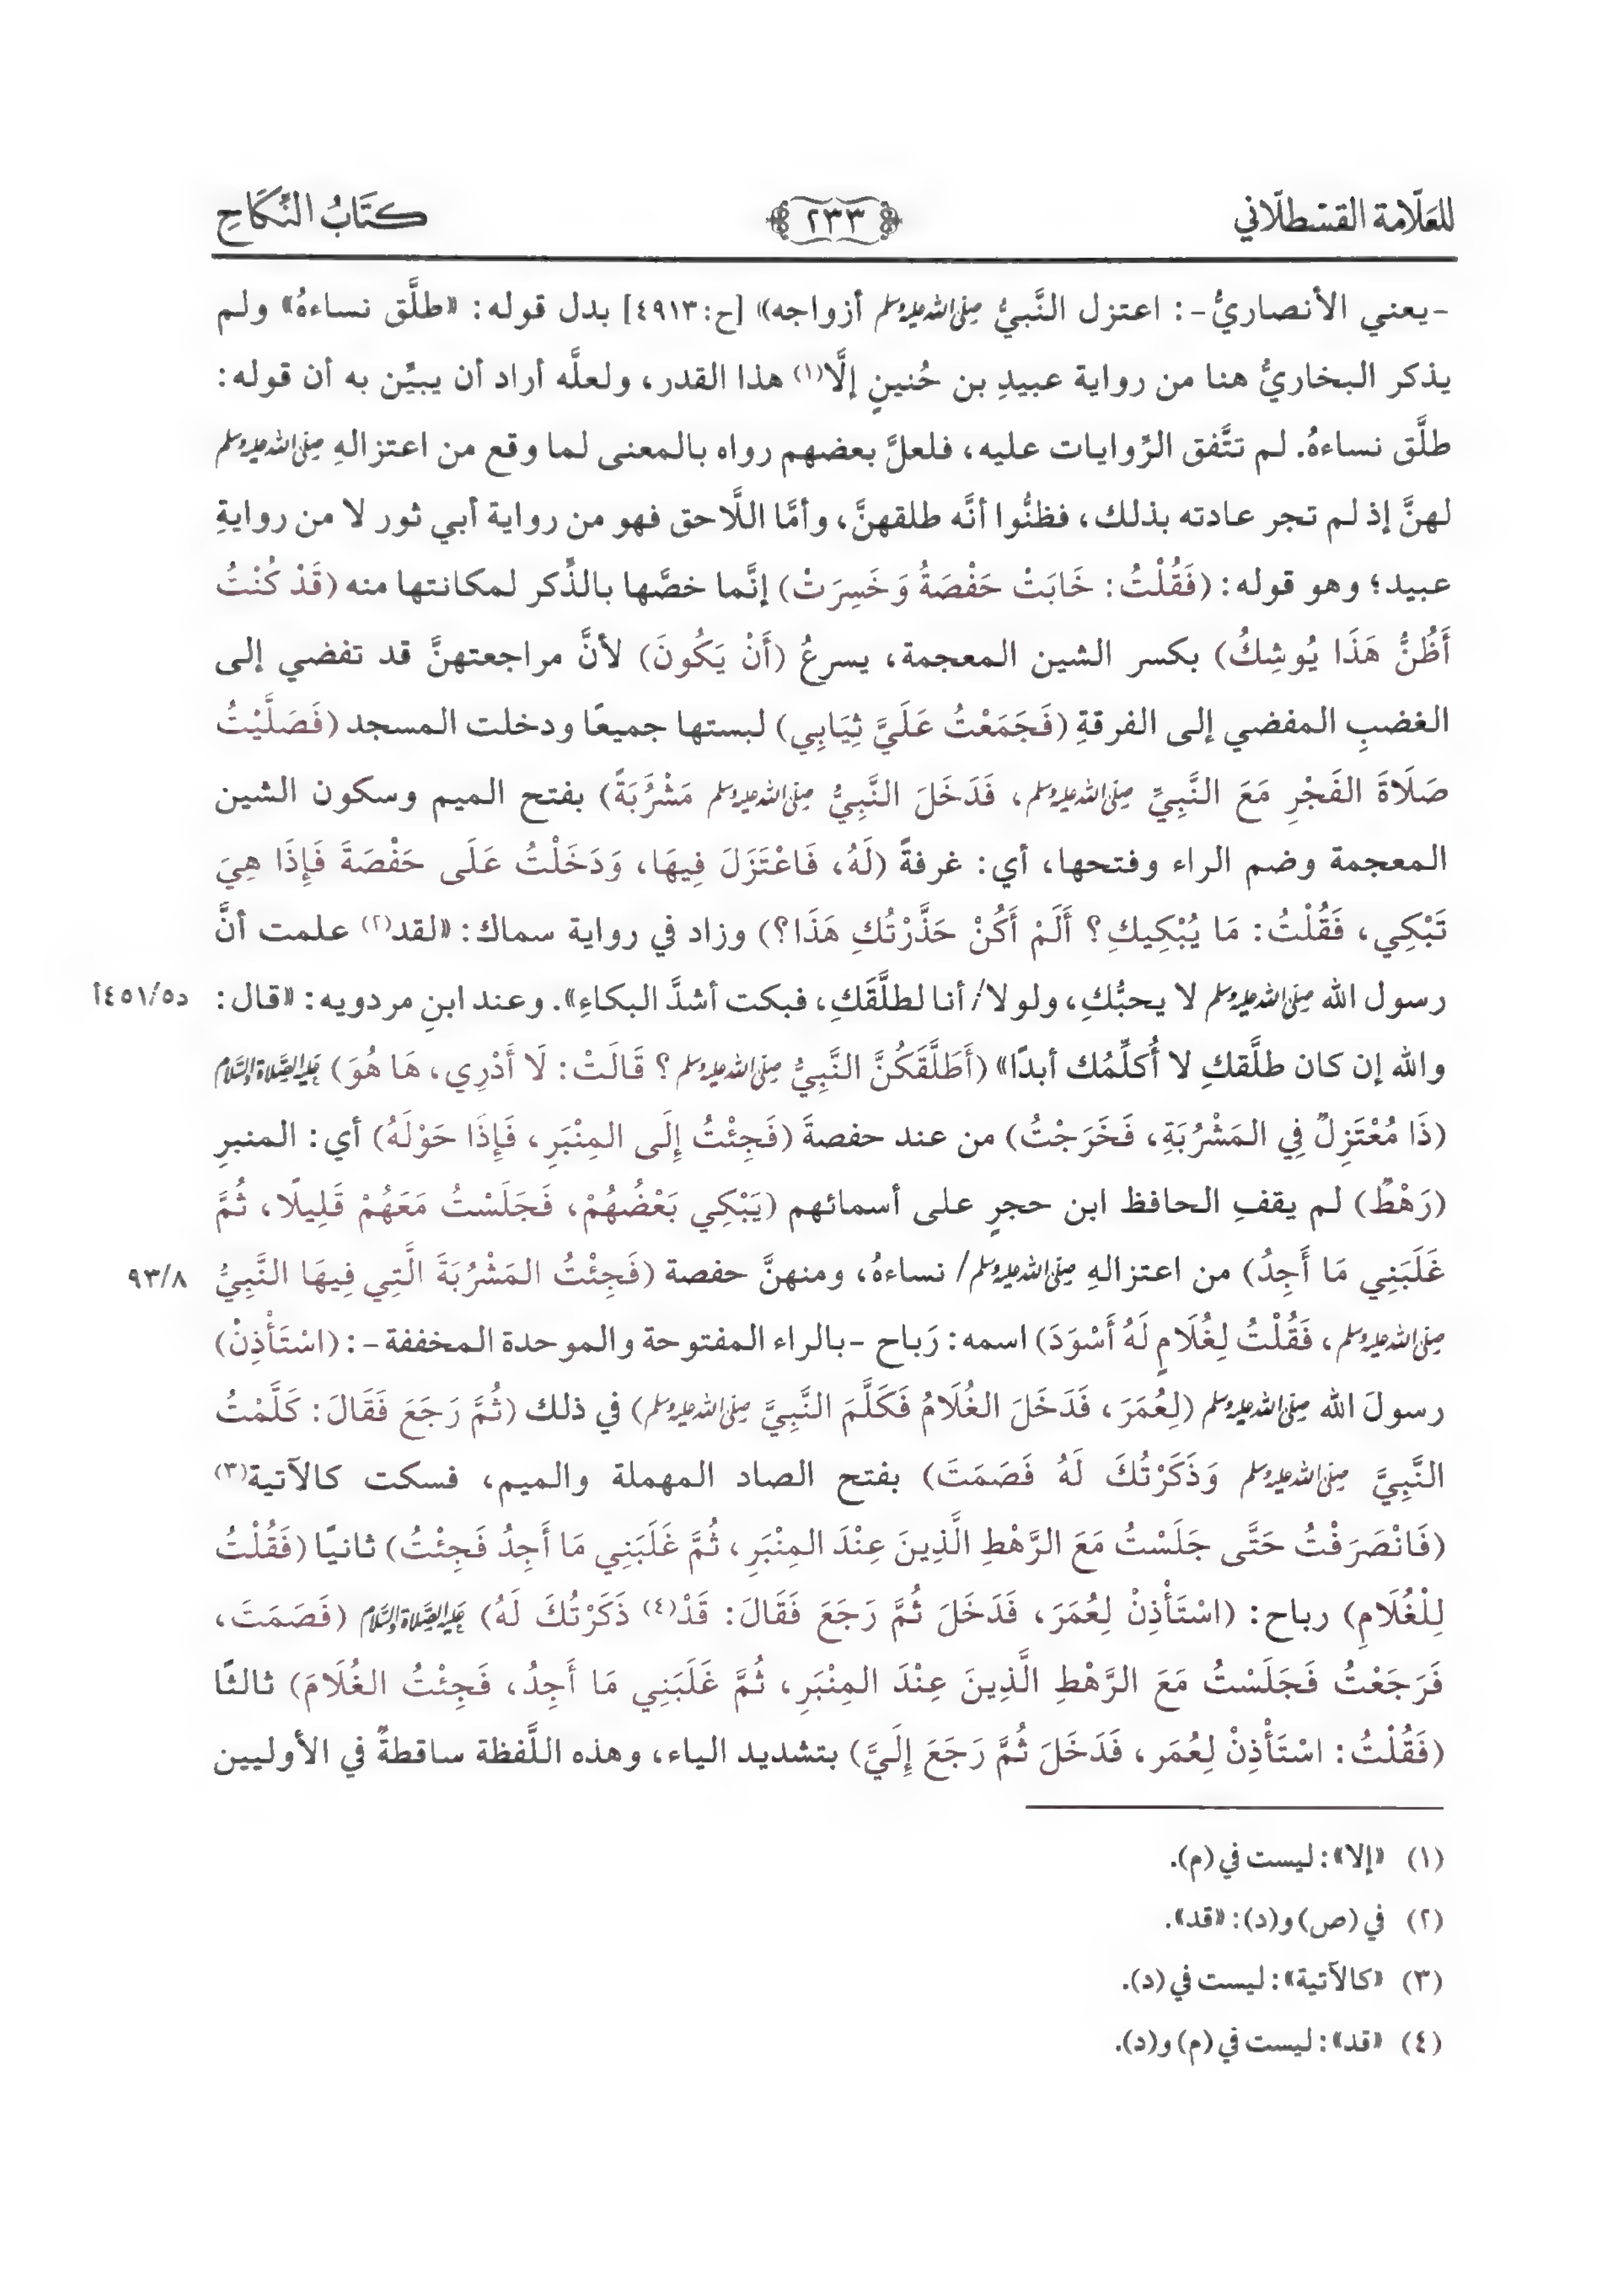 للعلّامة القسطلّاني
٢٣٣
كتَابُ النِّكَاحِ
-يعني الأنصاريُّ-: اعتزل النَّبيُّ ﷺ أزواجه» [ح:٤٩١٣] بدل قوله: «طلَّق نساءهُ» ولم
يذكر البخاريُّ هنا من رواية عبيدِ بن حُنينٍ إلَّا(١) هذا القدر، ولعلَّه أراد أن يبيِّن به أن قوله:
طلَّق نساءهُ. لم تتَّفق الرِّوايات عليه، فلعلَّ بعضهم رواه بالمعنى لما وقع من اعتزالهِ ﷺ
لهنَّ إذ لم تجر عادته بذلك، فظنُّوا أنَّه طلقهنَّ، وأمَّا اللَّاحق فهو من رواية أبي ثور لا من روايةِ
عبيد؛ وهو قوله: (فَقُلْتُ: خَابَتْ حَفْصَةُ وَخَسِرَتْ) إنَّما خصَّها بالذِّكر لمكانتها منه (قَدْ كُنْتُ
أَظُنُّ هَذَا يُوشِكُ) بكسر الشين المعجمة، يسرعُ (أَنْ يَكُونَ) لأنَّ مراجعتهنَّ قد تفضي إلى
الغضبِ المفضي إلى الفرقةِ (فَجَمَعْتُ عَلَيَّ ثِيَابِي) لبستها جميعًا ودخلت المسجد (فَصَلَّيْتُ
صَلَاةَ الفَجْرِ مَعَ النَّبِيِّ ﷺ، فَدَخَلَ النَّبِيُّ ﷺ مَشْرُبَةً) بفتح الميم وسكون الشين
المعجمة وضم الراء وفتحها، أي: غرفةً (لَهُ، فَاعْتَزَلَ فِيهَا، وَدَخَلْتُ عَلَى حَفْصَةَ فَإِذَا هِيَ
تَبْكِي، فَقُلْتُ: مَا يُبْكِيكِ؟ أَلَمْ أَكُنْ حَذَّرْتُكِ هَذَا؟) وزاد في رواية سماك: «لقد(٢) علمت أنَّ
رسول الله ﷺ لا يحبُّكِ، ولولا/ أنا لطلَّقَكِ، فبكت أشدَّ البكاءِ». وعند ابنِ مردويه: «قال:
د٤٥١/٥أ
والله إن كان طلَّقكِ لا أُكلِّمُك أبدًا» (أَطَلَّقَكُنَّ النَّبِيُّ ﷺ؟ قَالَتْ: لَا أَدْرِي، هَا هُوَ) عَلَيْهِ الصَّلَاة وَالسَّلَام
(ذَا مُعْتَزِلٌ فِي المَشْرُبَةِ، فَخَرَجْتُ) من عند حفصةَ (فَجِئْتُ إِلَى المِنْبَرِ، فَإِذَا حَوْلَهُ) أي: المنبرِ
(رَهْطٌ) لم يقفِ الحافظ ابن حجرٍ على أسمائهم (يَبْكِي بَعْضُهُمْ، فَجَلَسْتُ مَعَهُمْ قَلِيلًا، ثُمَّ
غَلَبَنِي مَا أَجِدُ) من اعتزالهِ ﷺ/ نساءهُ، ومنهنَّ حفصة (فَجِئْتُ المَشْرُبَةَ الَّتِي فِيهَا النَّبِيُّ
٩٣/٨
ﷺ، فَقُلْتُ لِغُلَامٍ لَهُ أَسْوَدَ) اسمه: رَباح -بالراء المفتوحة والموحدة المخففة-: (اسْتَأْذِنْ)
رسولَ الله ﷺ (لِعُمَرَ، فَدَخَلَ الغُلَامُ فَكَلَّمَ النَّبِيَّ ﷺ) في ذلك (ثُمَّ رَجَعَ فَقَالَ: كَلَّمْتُ
النَّبِيَّ ﷺ وَذَكَرْتُكَ لَهُ فَصَمَتَ) بفتح الصاد المهملة والميم، فسكت كالآتية(٣)
(فَانْصَرَفْتُ حَتَّى جَلَسْتُ مَعَ الرَّهْطِ الَّذِينَ عِنْدَ المِنْبَرِ، ثُمَّ غَلَبَنِي مَا أَجِدُ فَجِئْتُ) ثانيًا (فَقُلْتُ
لِلْغُلَامِ) رباح: (اسْتَأْذِنْ لِعُمَرَ، فَدَخَلَ ثُمَّ رَجَعَ فَقَالَ: قَدْ(٤) ذَكَرْتُكَ لَهُ) عَلَيْهِ الصَّلَاة وَالسَّلَام (فَصَمَتَ،
فَرَجَعْتُ فَجَلَسْتُ مَعَ الرَّهْطِ الَّذِينَ عِنْدَ المِنْبَرِ، ثُمَّ غَلَبَنِي مَا أَجِدُ، فَجِئْتُ الغُلَامَ) ثالثًا
(فَقُلْتُ: اسْتَأْذِنْ لِعُمَر، فَدَخَلَ ثُمَّ رَجَعَ إِلَيَّ) بتشديد الياء، وهذه اللَّفظة ساقطةٌ في الأوليين
(١) «إلا»: ليست في (م).
(٢) في (ص) و(د): «قد».
(٣) «كالآتية»: ليست في (د).
(٤) «قد»: ليست في (م) و(د).